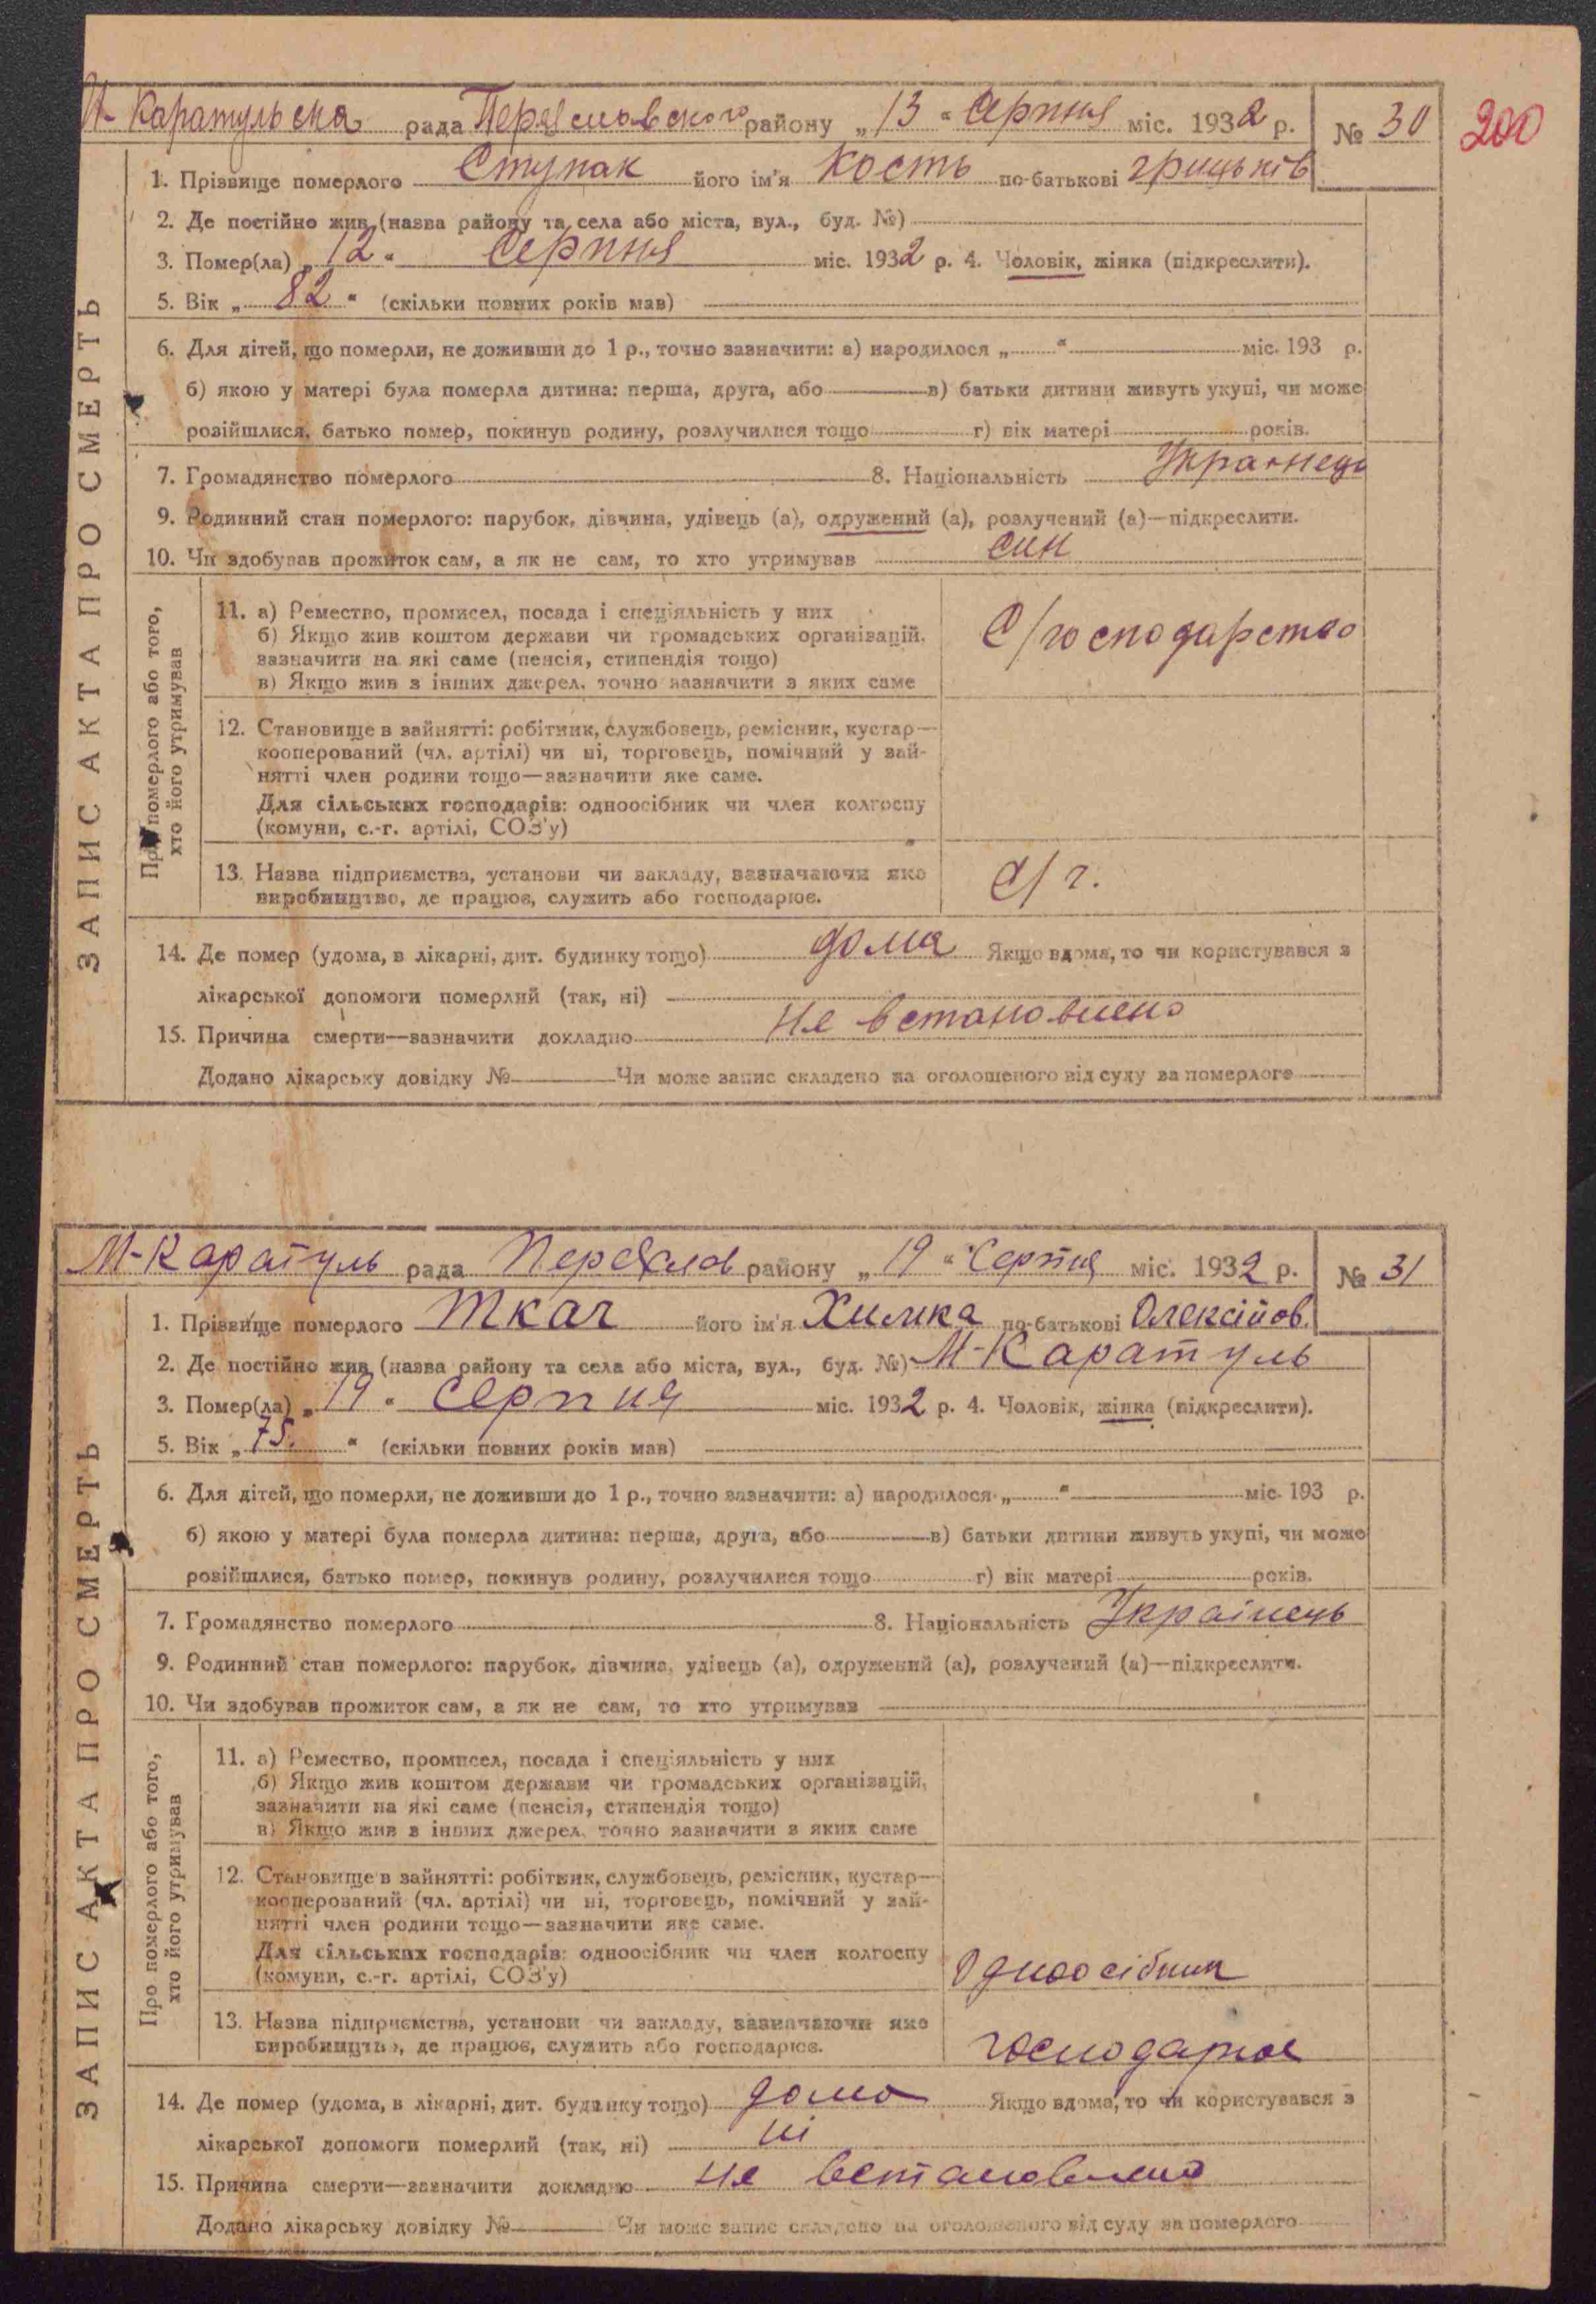 М-Каратульска рада Переяславского району „13“ Серпня міс. 1932 р. № 30
200
1. Прізвище померлого Ступак його ім'я Кость по-батькові грицьків
2. Де постійно жив (назва району та села або міста, вул., буд. №)
3. Помер(ла) „12“ Серпня міс. 1932 р. 4. Чоловік, жінка (підкреслити).
5. Вік „82“ (скільки повних років мав)
6. Для дітей, що померли, не доживши до 1 р., точно зазначити: а) народилося „ “ міс. 193 р.
б) якою у матері була померла дитина: перша, друга, або в) батьки дитини живуть укупі, чи може
розійшлися, батько помер, покинув родину, розлучилися тощо г) вік матері років.
7. Громадянство померлого 8. Національність Украинець
9. Родинний стан померлого: парубок, дівчина, удівець (а), одружений (а), розлучений (а)—підкреслити.
10. Чи здобував прожиток сам, а як не сам, то хто утримував син
ЗАПИС АКТА ПРО СМЕРТЬ
Про померлого або того,
хто його утримував
11. а) Ремество, промисел, посада і спеціяльність у них
б) Якщо жив коштом держави чи громадських організацій,
зазначити на які саме (пенсія, стипендія тощо)
в) Якщо жив з інших джерел, точно зазначити з яких саме
С/господарство
12. Становище в зайнятті: робітник, службовець, ремісник, кустар—
кооперований (чл. артілі) чи ні, торговець, помічний у зай-
нятті член родини тощо—зазначити яке саме.
Для сільських господарів: одноосібник чи член колгоспу
(комуни, с.-г. артілі, СОЗ'у)
13. Назва підприємства, установи чи закладу, зазначаючи яке
виробництво, де працює, служить або господарює.
С/г.
14. Де помер (удома, в лікарні, дит. будинку тощо) дома Якщо вдома, то чи користувався з
лікарської допомоги померлий (так, ні)
15. Причина смерти—зазначити докладно Не встановлено
Додано лікарську довідку № Чи може запис складено на оголошеного від суду за померлого
М-Каратуль рада Переяслов району „19“ Серпня міс. 1932 р. № 31
1. Прізвище померлого Ткач його ім'я Химка по-батькові Олексійов.
2. Де постійно жив (назва району та села або міста, вул., буд. №) М-Каратуль
3. Помер(ла) „19“ Серпня міс. 1932 р. 4. Чоловік, жінка (підкреслити).
5. Вік „75.“ (скільки повних років мав)
6. Для дітей, що померли, не доживши до 1 р., точно зазначити: а) народилося „ “ міс. 193 р.
б) якою у матері була померла дитина: перша, друга, або в) батьки дитини живуть укупі, чи може
розійшлися, батько помер, покинув родину, розлучилися тощо г) вік матері років.
7. Громадянство померлого 8. Національність Українець
9. Родинний стан померлого: парубок, дівчина, удівець (а), одружений (а), розлучений (а)—підкреслити.
10. Чи здобував прожиток сам, а як не сам, то хто утримував
ЗАПИС АКТА ПРО СМЕРТЬ
Про померлого або того,
хто його утримував
11. а) Ремество, промисел, посада і спеціяльність у них
б) Якщо жив коштом держави чи громадських організацій,
зазначити на які саме (пенсія, стипендія тощо)
в) Якщо жив з інших джерел, точно зазначити з яких саме
12. Становище в зайнятті: робітник, службовець, ремісник, кустар—
кооперований (чл. артілі) чи ні, торговець, помічний у зай-
нятті член родини тощо—зазначити яке саме.
Для сільських господарів: одноосібник чи член колгоспу
(комуни, с.-г. артілі, СОЗ'у)
Одноосібник
13. Назва підприємства, установи чи закладу, зазначаючи яке
виробництво, де працює, служить або господарює.
господарює
14. Де помер (удома, в лікарні, дит. будинку тощо) дома Якщо вдома, то чи користувався з
лікарської допомоги померлий (так, ні) ні
15. Причина смерти—зазначити докладно не встановлено
Додано лікарську довідку № Чи може запис складено на оголошеного від суду за померлого